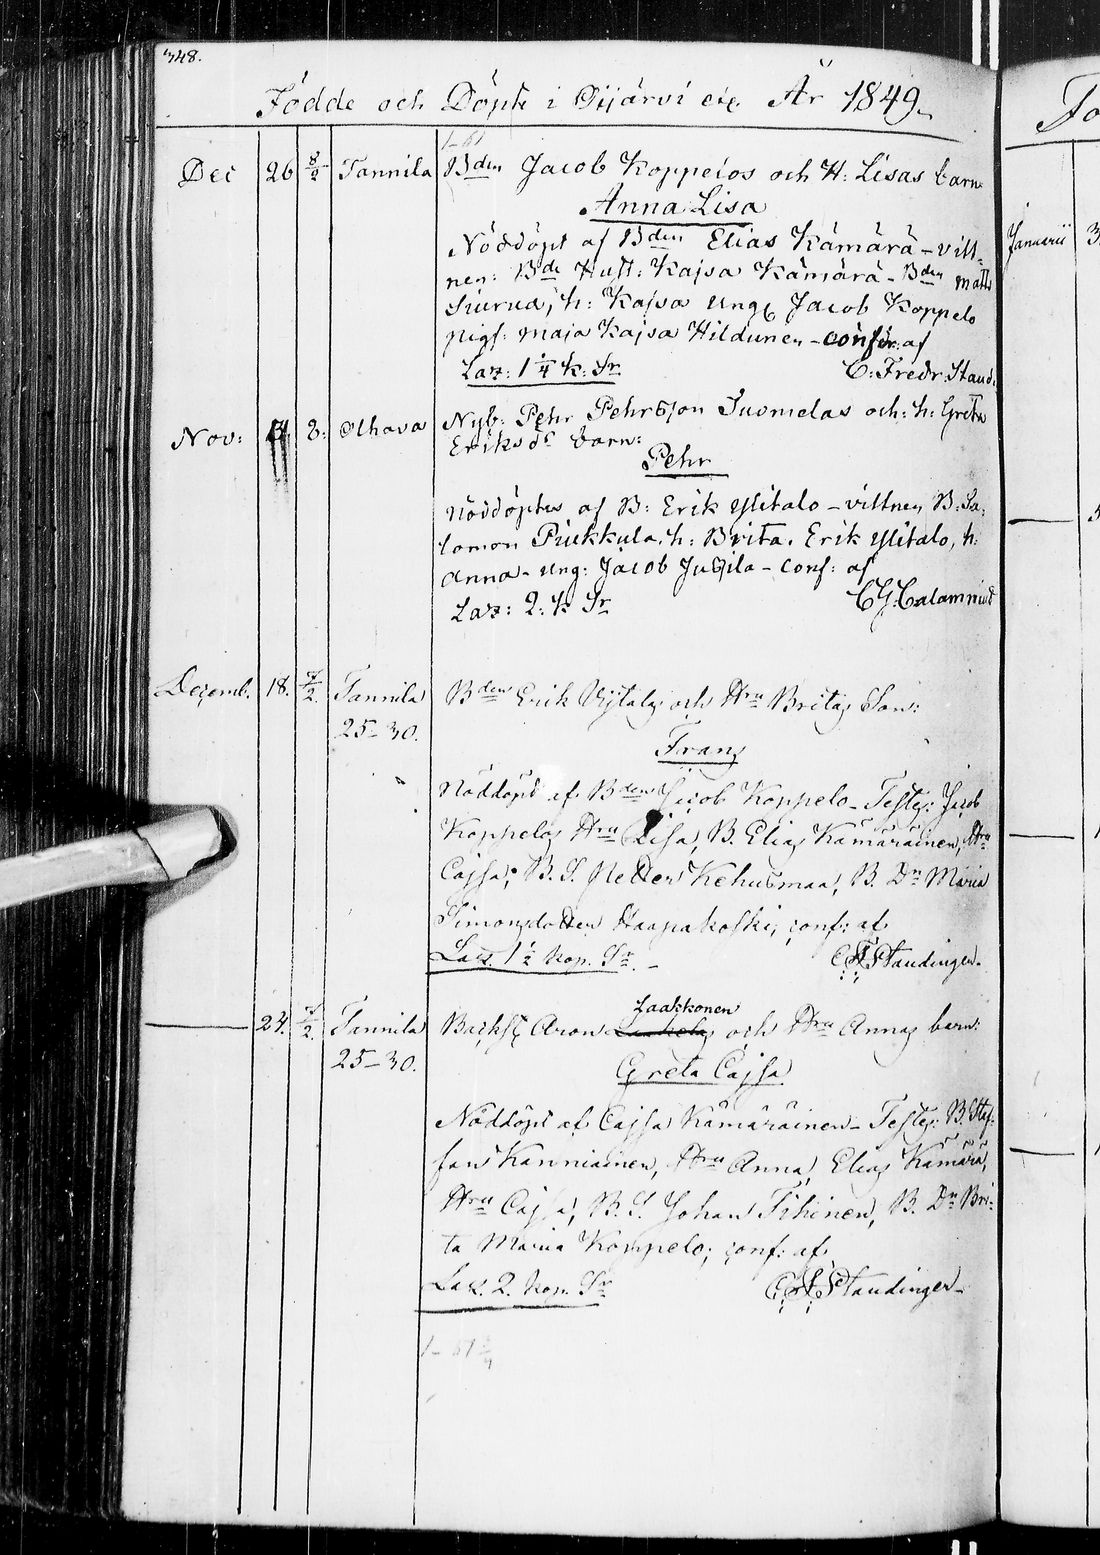 348.
Födde och Döpte i Oijärvi År 1849.
1-61
Dec 26 8/2 Tannila Bden Jacob Koppelos och H: Lisas barn
Anna Lisa
Nöddöpt af Bden Elias Kämärä - vitt-
nen: Bde Hust: Kajsa Kämärä - Bden Matts
Siurua, h: Kajsa Ung Jacob Koppelo
pig: Maja Kajsa Hildunen - confir: af
Laz: 1 1/4 k: Sr C: Fredr. Staud.
Nov: 2: Olhava Nyb: Pehr Pehrsson Suomelas och: h: Greta
Eriksdr barn:
Pehr
Nöddöptes af B: Erik Ylitalo - vittnen B: Sa-
lomon Piukkula, h: Brita. Erik Ylitalo, h:
Anna - Ung: Jacob - conf: af
Laz: 2: k Sr CG: Calamnius
Decemb. 18. 7/2. Tannila Bden Erik och Hru Britas Son:
25-30.
Frans
Nöddöpt af Bden Jacob Koppelo - Testes: Jacob
Koppelos Hru Lisa, B. Elias Kämäräinen, Hru
Cajsa, B. S. Petter Kehusmaa, B. Dr Maria
Simonsdotter Haapakoski, conf: af
Laz. 1 1/2 kop. Sr. - Staudinger.
24. 7/2. Tannila Backst Aron Laakkonen och Hru Annas barn:
25-30.
Greta Cajsa
Nöddöpt af Cajsa Kämäräinen - Testes: B. Staf-
fan Kanniainen, Hru Anna, Elias Kämärä,
Hru Cajsa, B. S. Johan Tihinen, B. Dr Bri-
ta Maria Koppelo; conf: af
Laz. 2. kop. Sr Staudinger -
1-61
Fö
Januarii 3
5
1
1